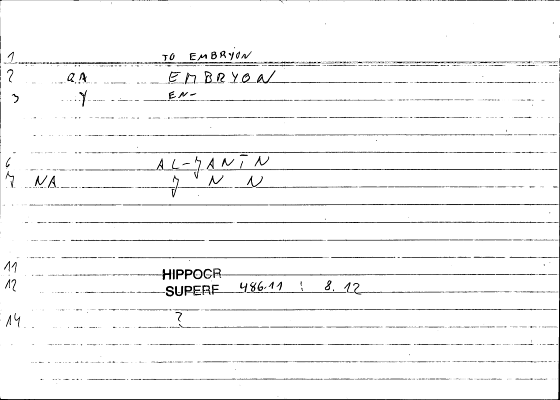 1 TO EMBRYON
2 QA EMBRYON
3 Y EN-
6 AL-JANIN
7 NA J N N
11 HIPPOCR
12 SUPERF 486.11 : 8.12
14 ?